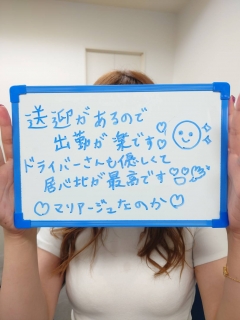 送迎があるので
出勤が楽です♡
ドライバーさんも優しくて
居心地が最高です♡♡
♡マリアージュなのか♡